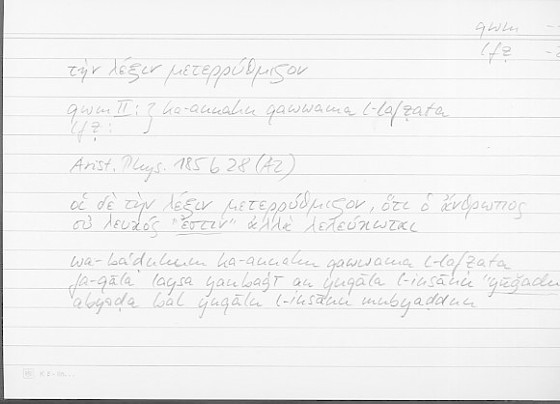 qwm
lfẓ
τὴν λέξιν μετερρύθμιζον
qwm II : } ka-annahu qawwama l-lafẓata
lfẓ :
Arist. Phys. 185 b 28 (A2)
οἱ δὲ τὴν λέξιν μετερρύθμιζον, ὅτι ὁ ἄνθρωπος
οὐ λευκός "ἐστιν" ἀλλὰ λελεύκωται
wa-baʿḍuhum ka-annahu qawwama l-lafẓata
fa-qāla laysa yanbaġī an yuqāla l-insānu "yūǧadu
abyaḍa bal yuqālu l-insānu mubyaḍḍun